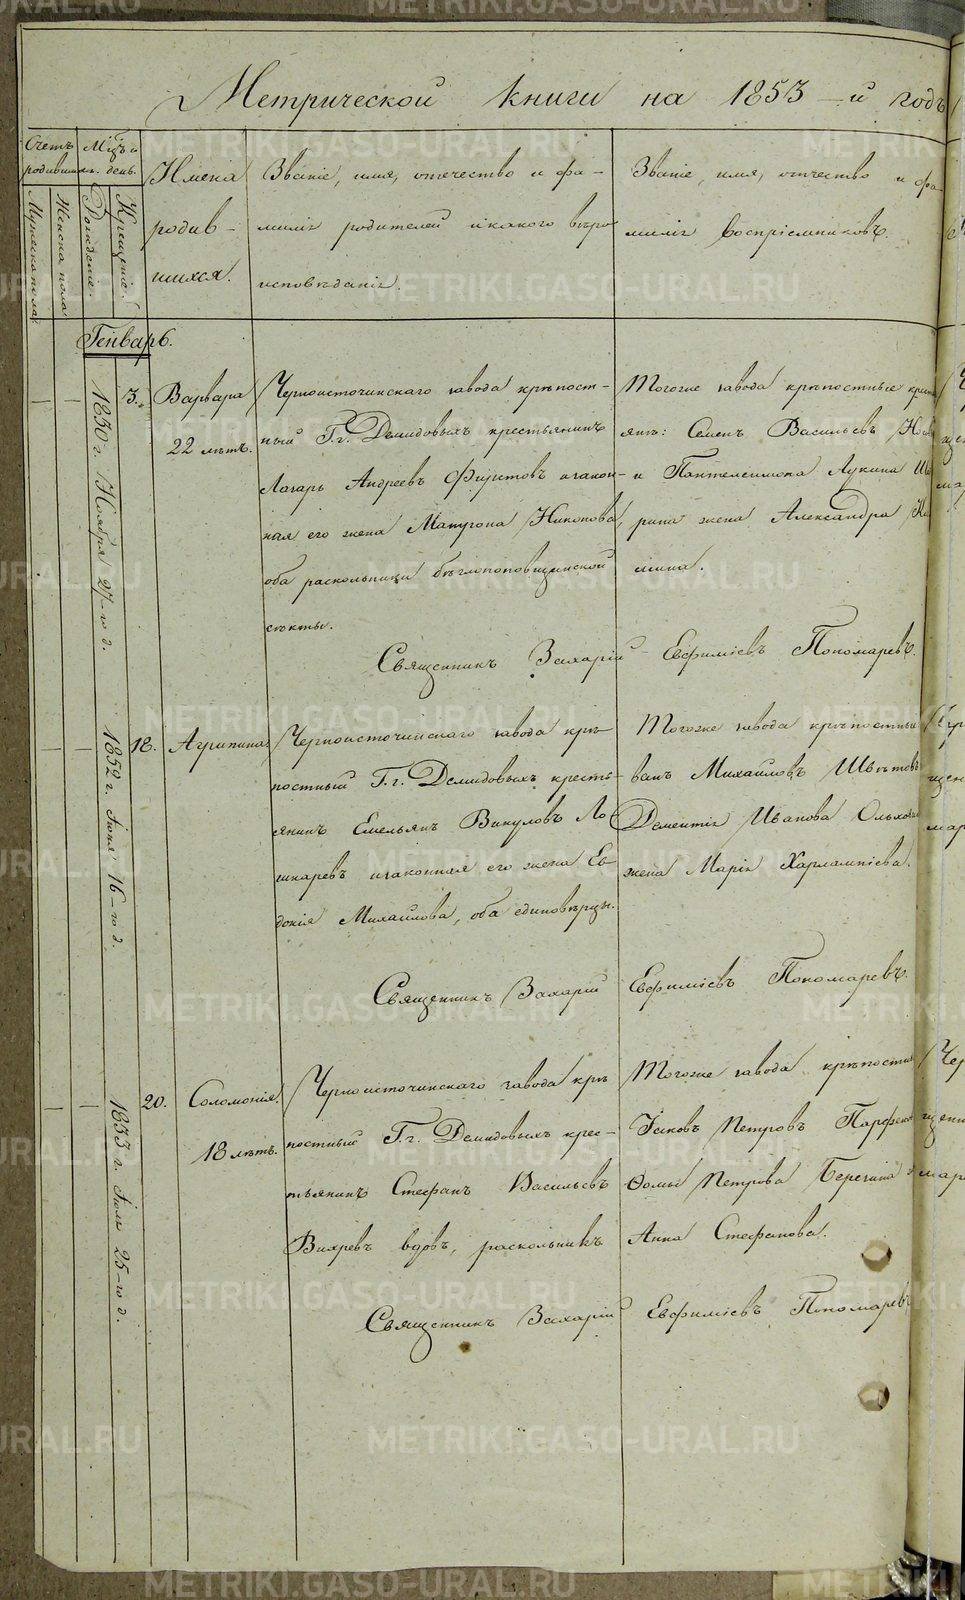 Метрической книги на 1853-й годъ
Счетъ родившихся.
Мужеска пола
Женска пола
Мѣсяцъ и день.
Рожденіе.
Крещеніе.
Имена
родив-
шихся.
Званіе, имя, отечество и фа-
милія родителей и какого вѣро
исповѣданія.
Званіе, имя, отчество и фа-
милія воспріемниковъ.
Генварь.
1830 г. Ноября 27-го д.
3.
Варвара
22 лѣтъ.
Черноисточинскаго завода крѣпост-
ный Г.г. Демидовыхъ крестьянинъ
Лазарь Андреевъ и закон-
ная его жена Матрона Никонова,
оба раскольники бѣглопоповщинской
секты.
Тогоже завода крѣпостные
Семенъ Васильевъ
и Пантелеимона Лукина
жена Александра
Священникъ Захарій Евфиміевъ Пономаревъ.
1852 г. Іюня 16-го д.
18.
Агрипина
Черноисточинскаго завода крѣ-
постный Г.г. Демидовыхъ кресть-
янинъ Емельянъ Викуловъ Ло-
и законная его жена Ев-
докія Михайлова, оба единовѣрцы.
Тогоже завода крѣпостные
ванъ Михайловъ Швѣтовъ
Дементія Иванова
жена Марія Харлампіева.
Священникъ Захарій Евфиміевъ Пономаревъ.
1833 г. Іюля 25-го д.
20.
Соломонія.
18 лѣтъ.
Черноисточинскаго завода крѣ
постный Г.г. Демидовыхъ крес-
тьянинъ Стефанъ Васильевъ
Вихревъ вдовъ, раскольникъ
Тогоже завода крѣпостные
Іаковъ Петровъ
Ѳомы Петрова Березина
Анна Стефанова.
Священникъ Захарій Евфиміевъ Пономаревъ
METRIKI.GASO-URAL.RU